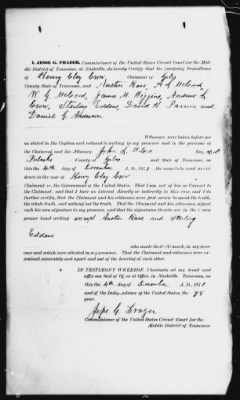 I, JESSE G. FRAZER, Commissioner of the United States Circuit Court for the
Middle District of Tennessee, at Nashville, do hereby certify that the foregoing Depositions
of Henry Clay Claimant of Giles
County State of Tennessee, and Austin Rose, A. J. McLeod
W. G. McLeod, James M. Higgins, Andrew L.
Crow, Sterling Eddens, David H. Parsons and
Daniel G.
Witnesses were taken before me
as stated in the Caption and reduced to writing in my presence and in the presence of
the Claimant and his Attorney, John L.
Pulaski County of Giles and State of Tennessee, on
this the 4th day of December A. D., 1878, the same to be used as evi-
dence in the case of Henry Clay
Claimant, vs. the Government of the United States. That I am not of kin or Counsel to
the Claimant, and that I have no interest, directly or indirectly in this case, and I do
further certify, that the Claimant and his witnesses were first sworn to speak the truth,
the whole truth, and nothing but the truth. That the Claimant and his witnesses, signed
each his own signature in my presence, and that the signatures thereto are in the own
proper hand writing except Austin Rose and Sterling
Eddens
who made their (X) mark, in my pres-
ence and which were attested in my presence. That the Claimant and witnesses were ex-
amined separately and apart and out of the hearing of each other.
IN TESTIMONY WHEREOF, I hereunto set my hand and
affix my Seal of Of., at Office, in Nashville Tennessee, on
this the 4th day of December A. D., 1878
and of the Indep., ndence of the United States, the
year.
Jesse G. Frazer
Commissioner of the United States Circuit Court for the
Middle District of Tennessee.